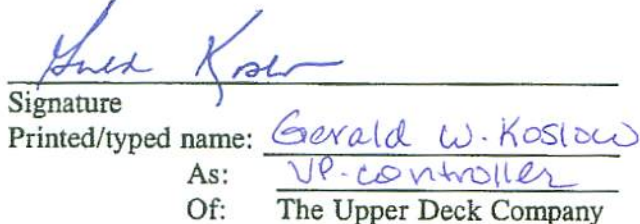 Signature
Printed/typed name: Gerald W. Koslow
As: VP-controller
Of: The Upper Deck Company